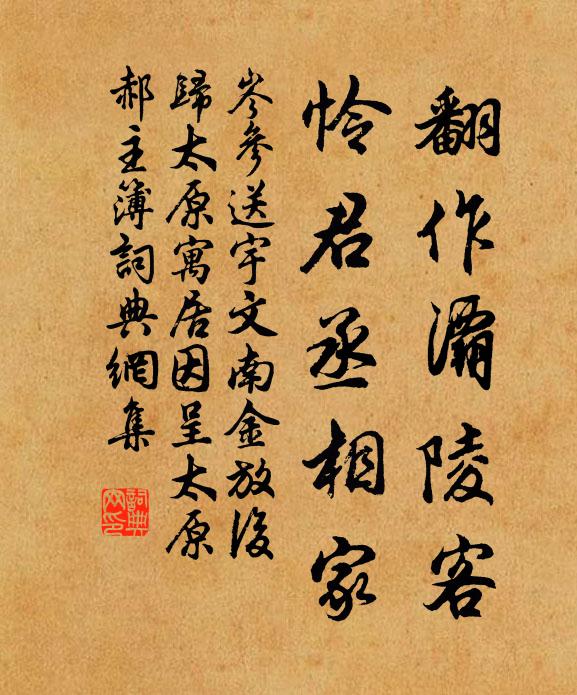 翻作灞陵客
怜君丞相家
岑參送宇文南金放後
歸太原寓居因呈太原
郝主簿詞典網集
詞典网印